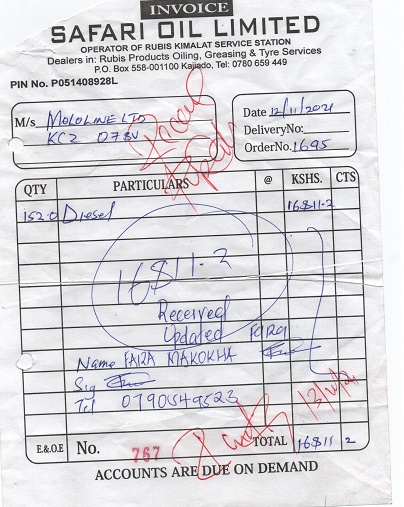 INVOICE
SAFARI OIL LIMITED
OPERATOR OF RUBIS KIMALAT SERVICE STATION
Dealers in: Rubis Products Oiling, Greasing & Tyre Services
P.O. Box 558-001100 Kajiado, Tel: 0780 659 449
PIN No. P051408928L
M/s MOLOLINE LTD
KCZ 078V
Date 12/11/2021
DeliveryNo:
OrderNo. 1695
QTY PARTICULARS @ KSHS. CTS
152.0 Diesel 16811-2
16811-2
Received
Updated
Name FAIRA MAKOKHA
Sig
Tel 0790549523
E.&O.E No. 767 TOTAL 16811 2
ACCOUNTS ARE DUE ON DEMAND